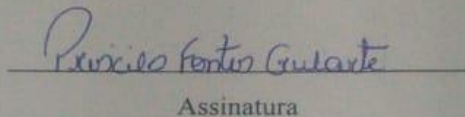 Priscila Fontes Gularte
Assinatura